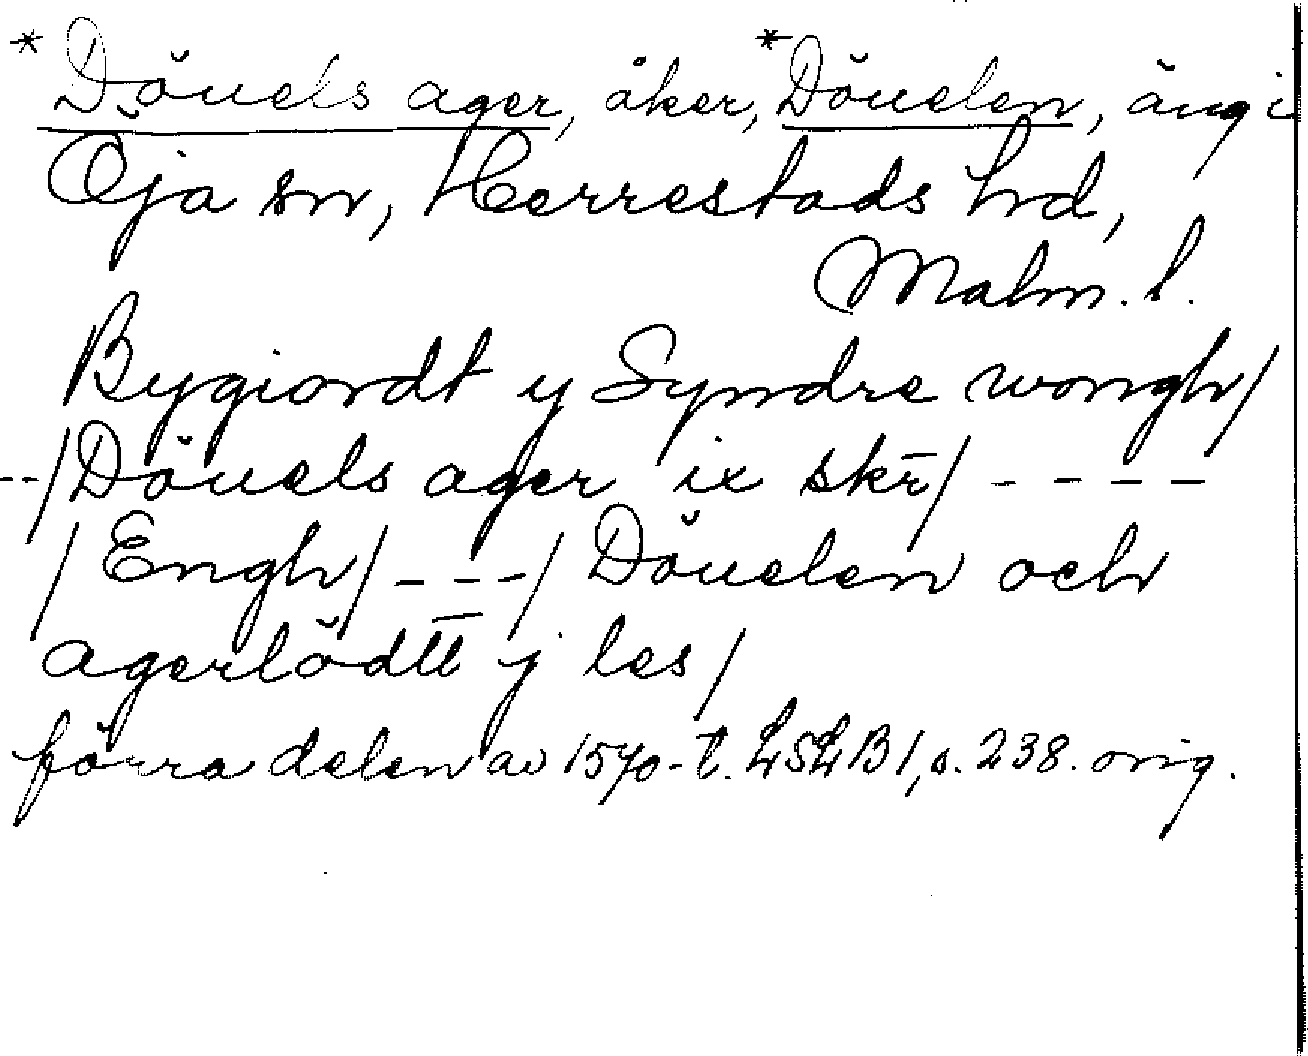 *Döuels ager, åker, *Döuelen, äng i
Öja sn, Herrestads hd,
Malm. l.
Bygiordt y Syndre wongh/
--/Döuels ager ix skr̄/ ----
/Engh/---/Döuelen och
agerlödtt̄ j les/
förra delen av 1570-t. LSLB1, s. 238. orig.